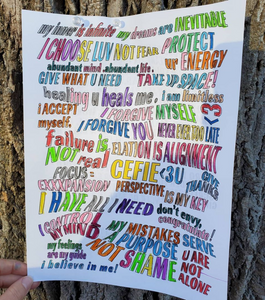 my inner is infinite my dreams are INEVITABLE
I CHOOSE LUV NOT FEAR. PROTECT
ur ENERGY
abundant mind. abundant life.
GIVE WHAT U NEED TAKE UP SPACE!
healing u heals me. I am limitless
I ACCEPT
myself.
I FORGIVE MYSELF <3
I FORGIVE YOU NEVER EVER TOO LATE
failure is
NOT real
ELATION IS ALIGNMENT
FOCUS =
EXXXPANSION
CEFIE <3 U
GIVE
THANKS
PERSPECTIVE IS MY KEY
I HAVE ALL I NEED
don't envy,
congratulate!
I CONTROL
my MIND
MY MISTAKES SERVE
MY PURPOSE
my feelings
are my guide
NOT SHAME
U ARE
NOT
ALONE
i believe in me!